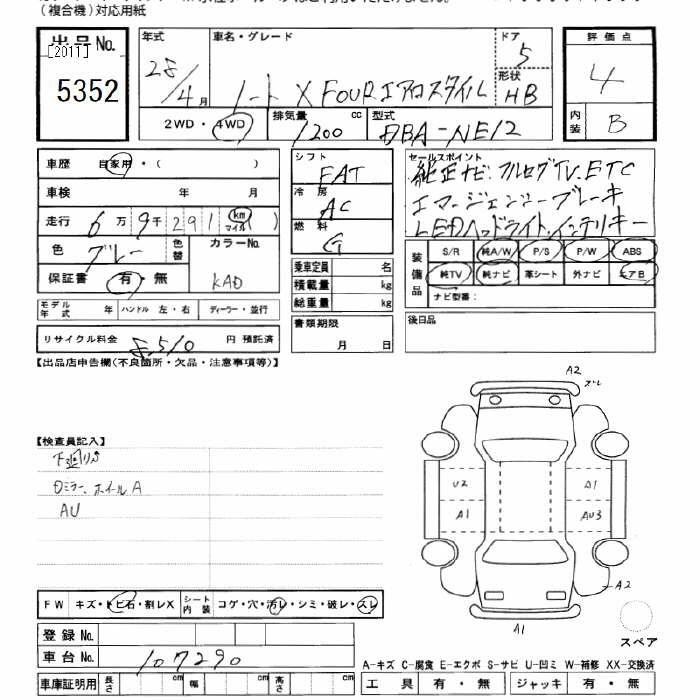 (複合機)対応用紙
出品No.
[2017]
5352
年式
28/4月
車名・グレード
ノート X FOURエアロスタイル
ドア
5
形状
HB
評価点
4
内装
B
2WD・4WD
排気量 cc
1200
型式
DBA-NE12
車歴 自家用・( )
車検 年 月
走行 6万9千291 (km マイル)
色 グレー 色替 カラーNo. KAD
保証書 有・無
モデル年式 年 ハンドル 左・右 ディーラー・並行
リサイクル料金 8,510 円 預託済
シフト FAT
冷房 AC
燃料 G
乗車定員 名
積載量 kg
総重量 kg
書類期限
月 日
セールスポイント
純正ナビ.フルセグTV.ETC
エマージェンシーブレーキ
LEDヘッドライト.インテリキー
装備品
S/R 純A/W P/S P/W ABS
純TV 純ナビ 革シート 外ナビ エアB
ナビ型番:
後日品
【出品店申告欄(不良箇所・欠品・注意事項等)】
【検査員記入】
下廻りサ
ロミラー、ホイールA
AU
A2
ズレ
U2
A1
A1
AU3
A2
A1
スペア
FW キズ・トビ石・割レX シート内装 コゲ・穴・汚レ・シミ・破レ・スレ
登録No.
車台No. 107290
車庫証明用 長さ cm 幅 cm 高さ cm
A-キズ C-腐食 E-エクボ S-サビ U-凹ミ W-補修 XX-交換済
工具 有・無 ジャッキ 有・無